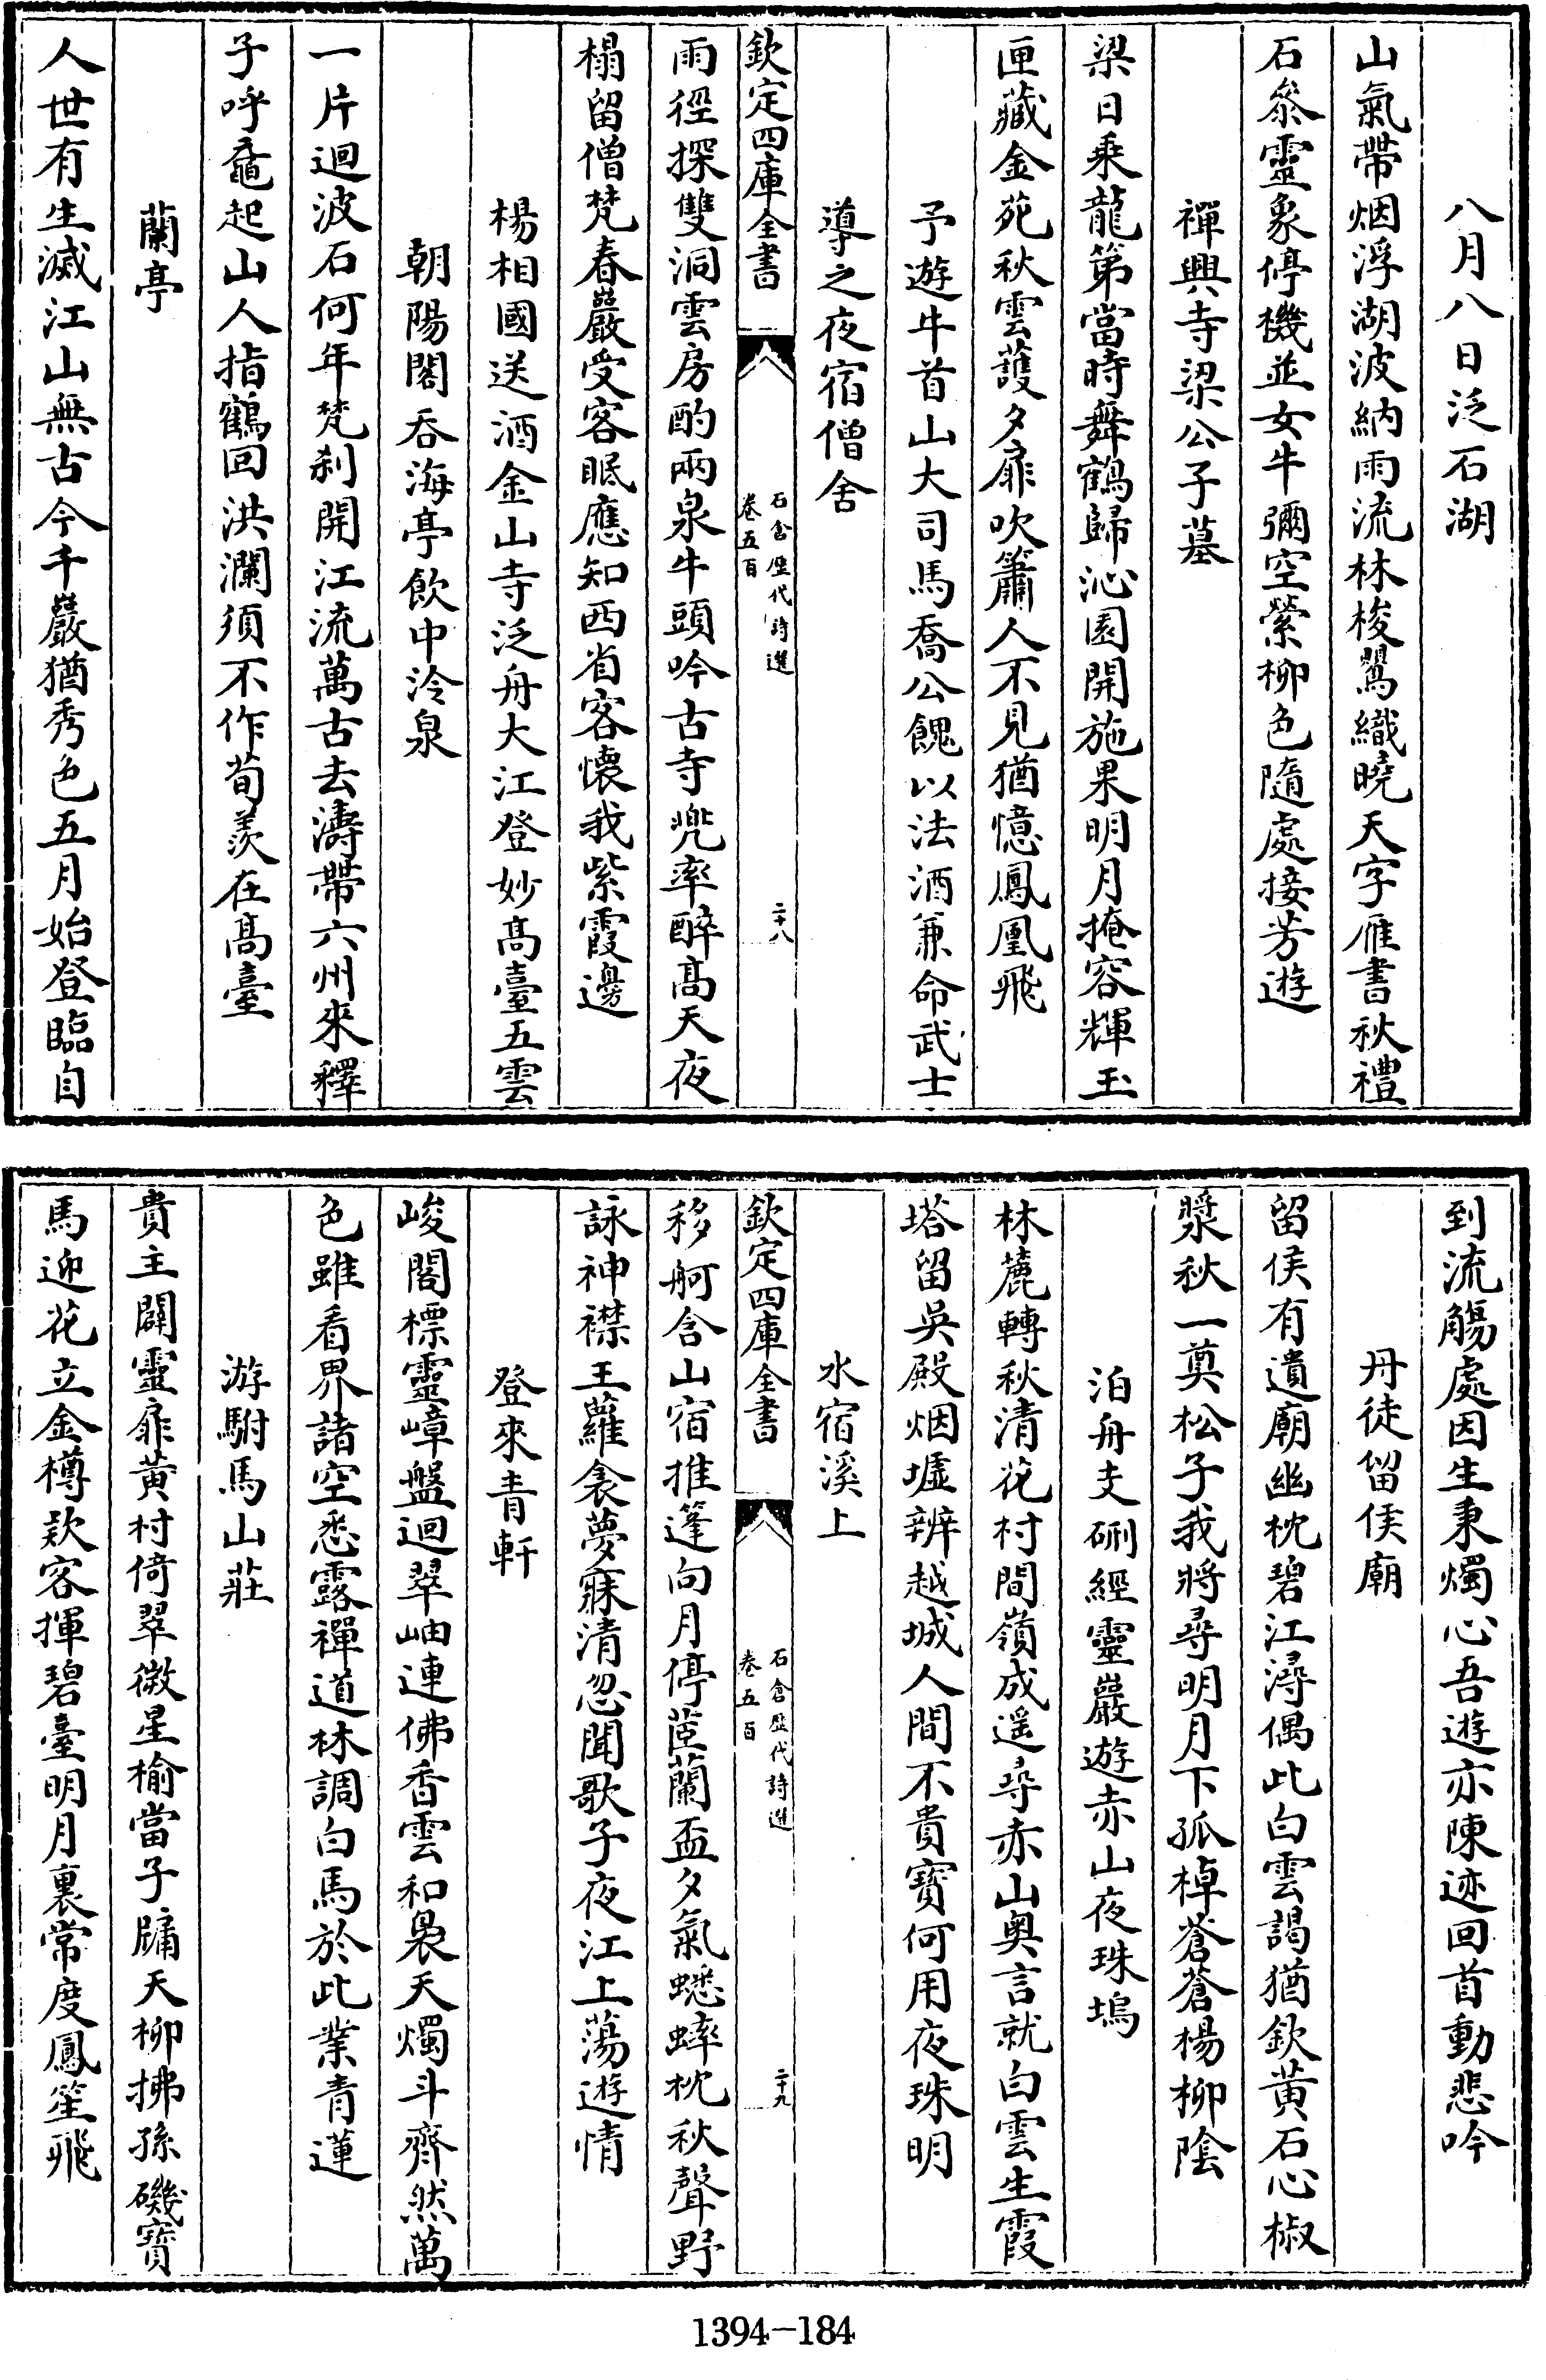 八月八日泛石湖
山氣帶烟浮湖波納雨流林梭鸎織曉天字雁書秋禮
石叅靈象停機並女牛彌空縈柳色隨處接芳遊
禪興寺梁公子墓
梁日乗龍第當時舞鶴歸沁園開施果明月掩容輝玉
匣藏金苑秋雲護夕扉吹簫人不見猶憶鳳凰飛
予遊牛首山大司馬喬公餽以法酒兼命武士
導之夜宿僧舍
欽定四庫全書
石倉歴代詩選
卷五百
二十八
雨徑探雙洞雲房酌兩泉牛頭吟古寺兜率醉髙天夜
榻留僧梵春巖受客眠應知西省客懐我紫霞邊
楊相國送酒金山寺泛舟大江登妙髙臺五雲
朝陽閣吞海亭飲中泠泉
一片迴波石何年梵刹開江流萬古去濤帶六州來釋
子呼黿起山人指鶴回洪瀾須不作荀羡在髙臺
蘭亭
人世有生滅江山無古今千巖猶秀色五月始登臨自
到流觴處因生秉燭心吾遊亦陳迹回首動悲吟
丹徒留侯廟
留侯有遺廟幽枕碧江潯偶此白雲謁猶欽黄石心椒
漿秋一奠松子我將尋明月下孤棹蒼蒼楊柳陰
泊舟支硎經靈巖遊赤山夜珠塢
林麓轉秋清花村間嶺成遥尋赤山奥言就白雲生霞
塔留吳殿烟墟辨越城人間不貴寳何用夜珠明
水宿溪上
欽定四庫全書
石倉歴代詩選
卷五百
二十九
移舸含山宿推篷向月停茝蘭盃夕氣蟋蟀枕秋聲野
詠神襟王蘿衾夢寐清忽聞歌子夜江上蕩遊情
登來青軒
峻閣標靈嶂盤迴翠岫連佛香雲和裊天燭斗齊然萬
色雖看界諸空悉露禪道林調白馬於此業青蓮
游駙馬山莊
貴主闢靈扉黄村倚翠微星榆當子牗天柳拂孫磯寳
馬迎花立金樽欵客揮碧臺明月裏常度鳳笙飛
1394-184